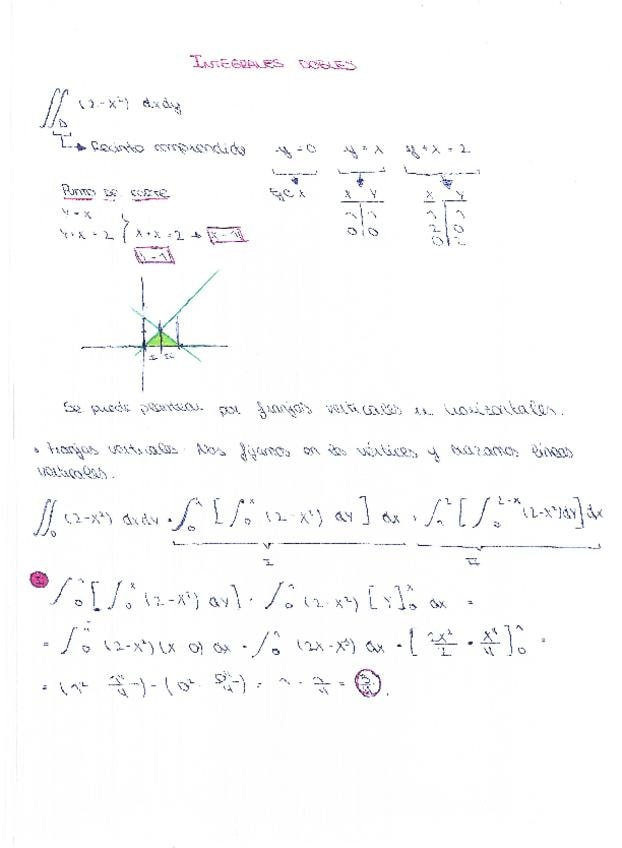 INTEGRALES DOBLES
∬_D (2-x²) dxdy
↳ Recinto comprendido y=0 y=x y+x=2
Eje x
x | y
1 | 1
0 | 0
x | y
1 | 1
2 | 0
0 | 2
PUNTO DE CORTE
y=x
y+x=2 } x+x=2 → x=1
y=1
I II
Se puede plantear por franjas verticales u horizontales.
• Franjas verticales. Nos fijamos en los vértices y trazamos líneas
verticales.
∬_D (2-x²) dxdy = ∫₀¹ [∫₀ˣ (2-x²) dy] dx + ∫₁² [∫₀²⁻ˣ (2-x²)dy] dx
I II
I ∫₀¹ [∫₀ˣ (2-x²) dy] = ∫₀¹ (2-x²) [y]₀ˣ dx =
= ∫₀¹ (2-x²)(x-0) dx = ∫₀¹ (2x-x³) dx = [2x²/2 - x⁴/4]₀¹ =
= (1² - 1⁴/4) - (0² - 0⁴/4) = 1 - 1/4 = 3/4.